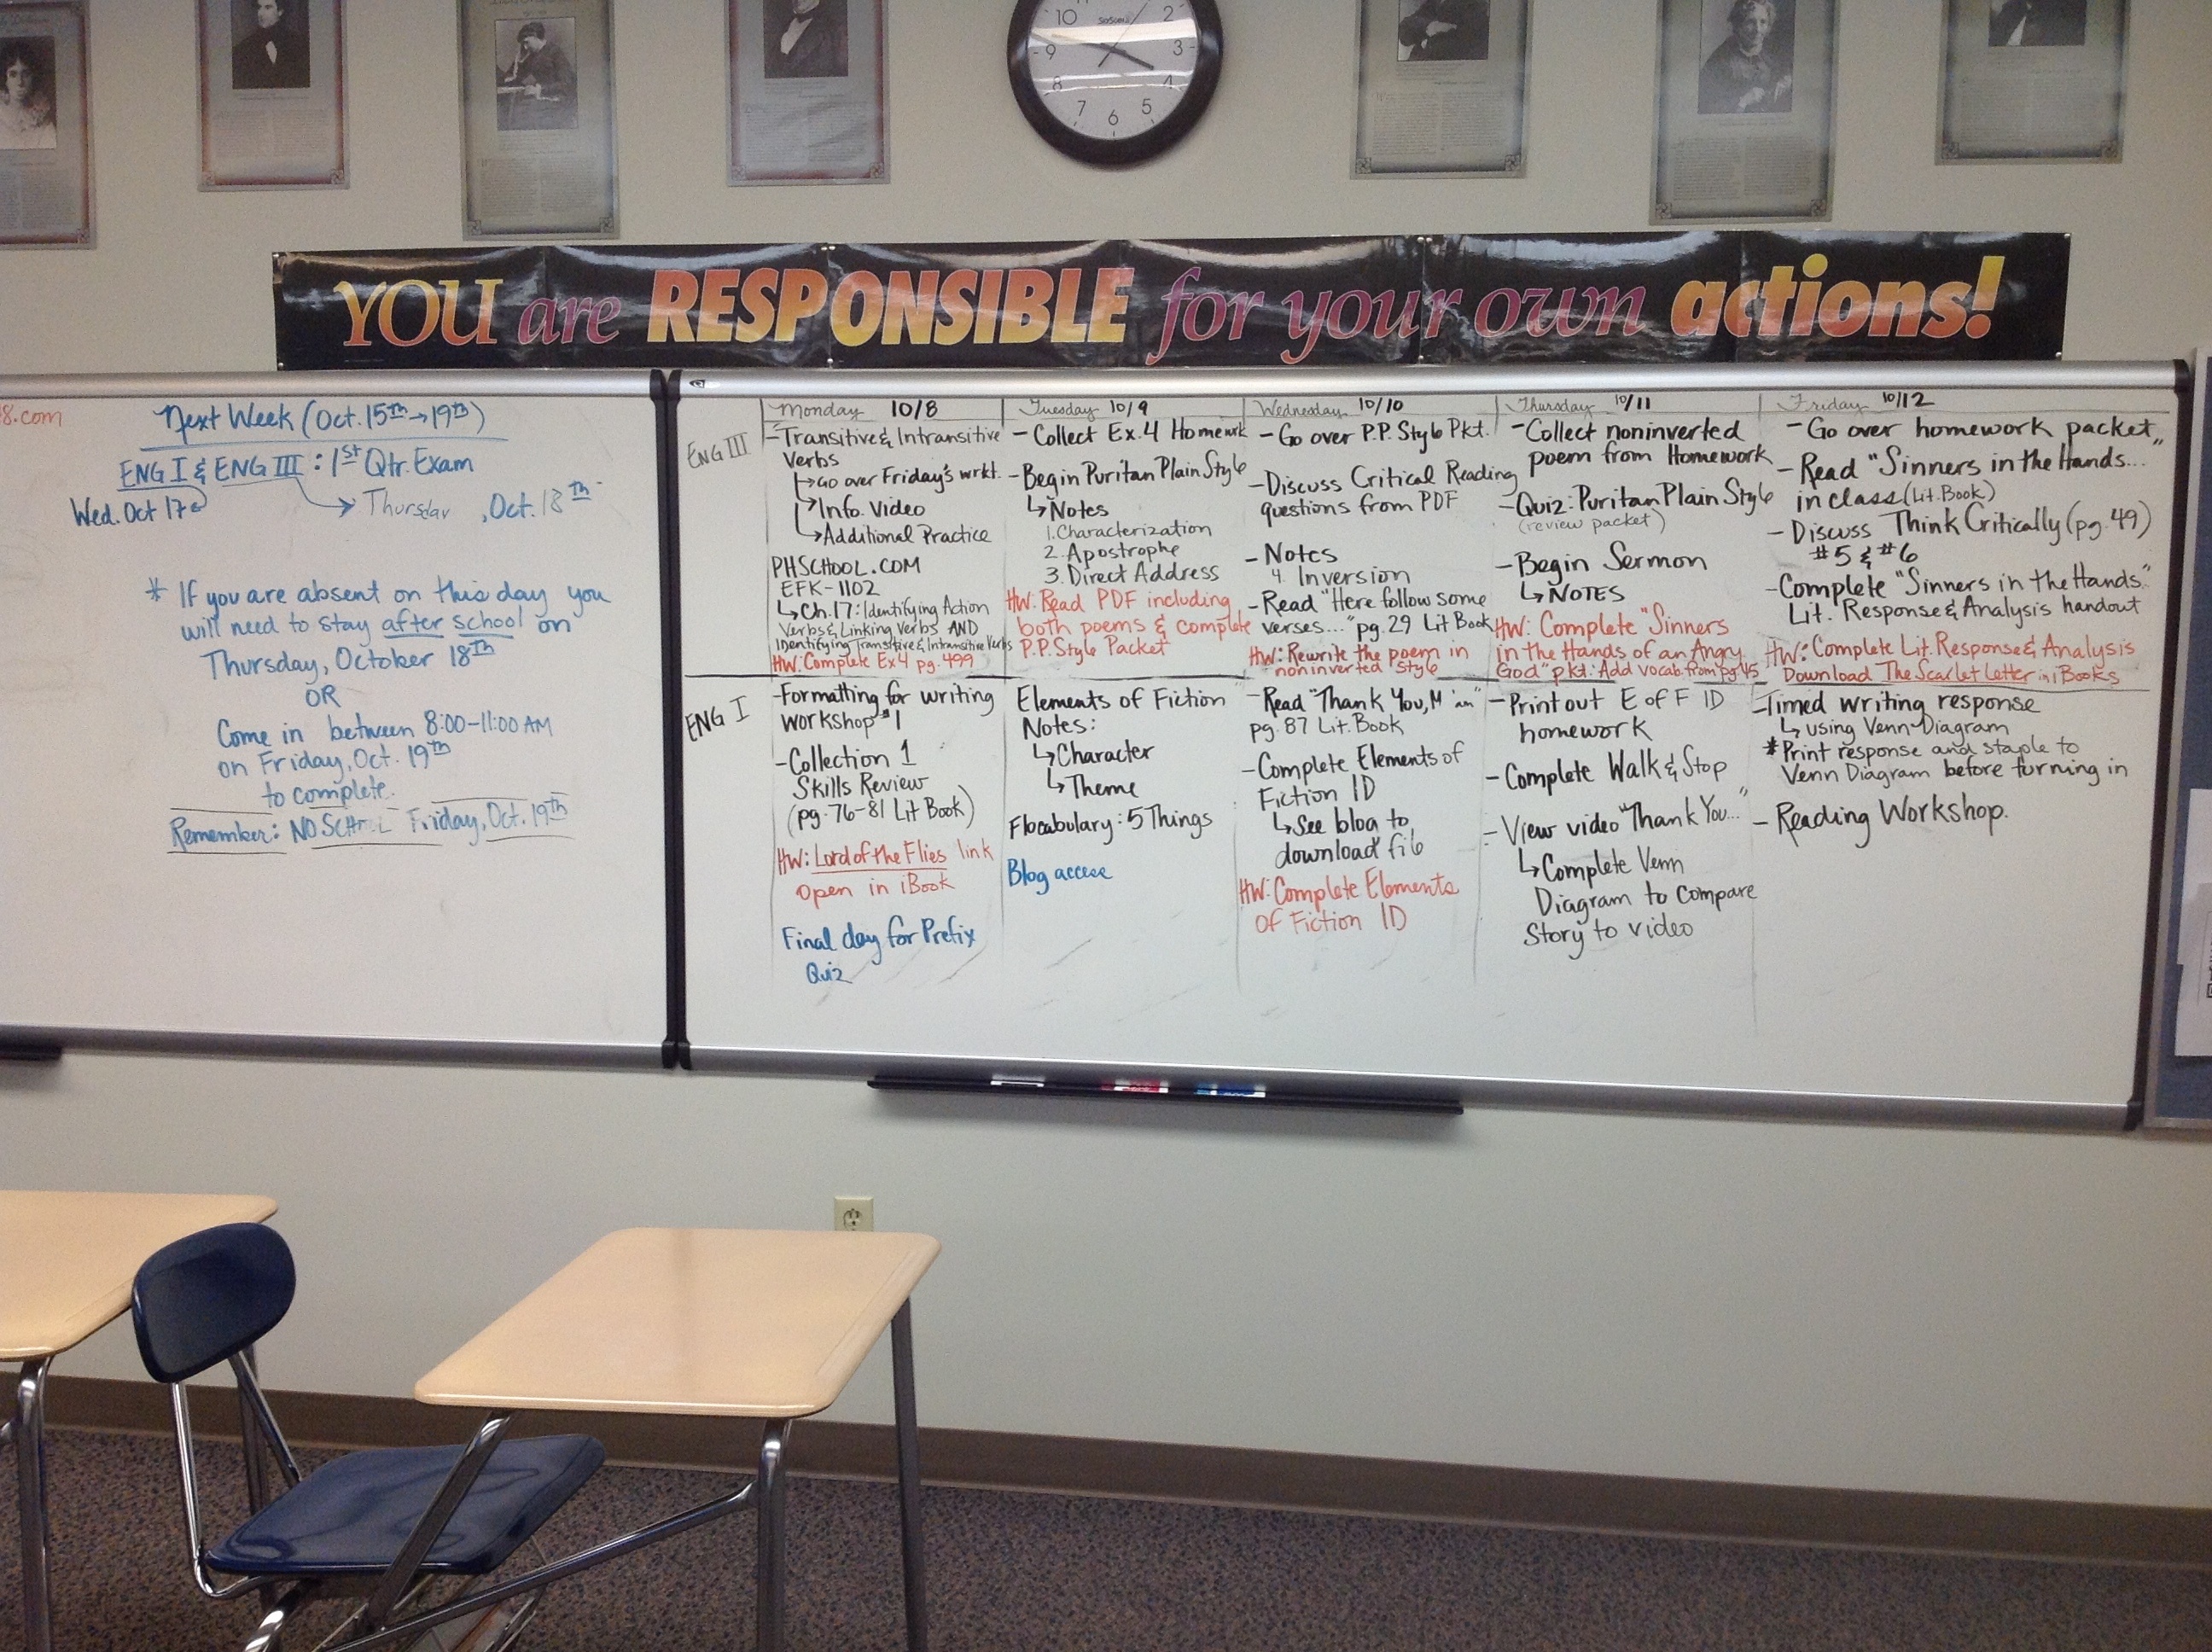 10
2
9
3
8
4
7
5
6
YOU are RESPONSIBLE for your own actions!
8.com
Next Week (Oct. 15th → 19th)
ENG I & ENG III : 1st Qtr. Exam
Wed. Oct 17
Thursday, Oct. 18th
* If you are absent on this day you
will need to stay after school on
Thursday, October 18th
OR
Come in between 8:00-11:00 AM
on Friday, Oct. 19th
to complete.
Remember: NO SCHOOL Friday, Oct. 19th
Monday 10/8
ENG III
-Transitive & Intransitive
Verbs
↳Go over Friday's wrkt.
↳Info. Video
↳Additional Practice
PHSCHOOL.COM
EFK-1102
↳Ch.17: Identifying Action
Verbs & Linking Verbs AND
Identifying Transitive & Intransitive Verbs
HW: Complete Ex 4 pg. 499
Tuesday 10/9
- Collect Ex. 4 Homewrk
-Begin Puritan Plain Style
↳Notes
1. Characterization
2. Apostrophe
3. Direct Address
HW: Read PDF including
both poems & complete
P.P. Style Packet
Wednesday 10/10
- Go over P.P. Style Pkt.
-Discuss Critical Reading
questions from PDF
- Notes
4. Inversion
-Read "Here follow some
verses..." pg. 29 Lit Book
HW: Rewrite the poem in
noninverted style
Thursday 10/11
-Collect noninverted
poem from Homework
-Quiz: Puritan Plain Style
(review packet)
-Begin Sermon
↳NOTES
HW: Complete "Sinners
in the Hands of an Angry
God" pkt. Add vocab. from pg. 45
Friday 10/12
-Go over homework packet
-Read "Sinners in the Hands..."
in class (Lit. Book)
- Discuss Think Critically (pg. 49)
#5 & #6
-Complete "Sinners in the Hands"
Lit. Response & Analysis handout
HW: Complete Lit. Response & Analysis
Download The Scarlet Letter in iBooks
ENG I
-Formatting for writing
workshop #1
-Collection 1
Skills Review
(pg. 76-81 Lit Book)
HW: Lord of the Flies link
open in iBook
Final day for Prefix
Quiz
Elements of Fiction
Notes:
↳Character
↳Theme
Flocabulary: 5 Things
Blog access
-Read "Thank You, M'am"
pg. 87 Lit. Book
-Complete Elements of
Fiction ID
↳See blog to
download file
HW: Complete Elements
of Fiction ID
-Print out E of F ID
homework
-Complete Walk & Stop
- View video "Thank You..."
↳Complete Venn
Diagram to compare
Story to video
-Timed writing response
↳using Venn Diagram
*Print response and staple to
Venn Diagram before turning in
- Reading Workshop.